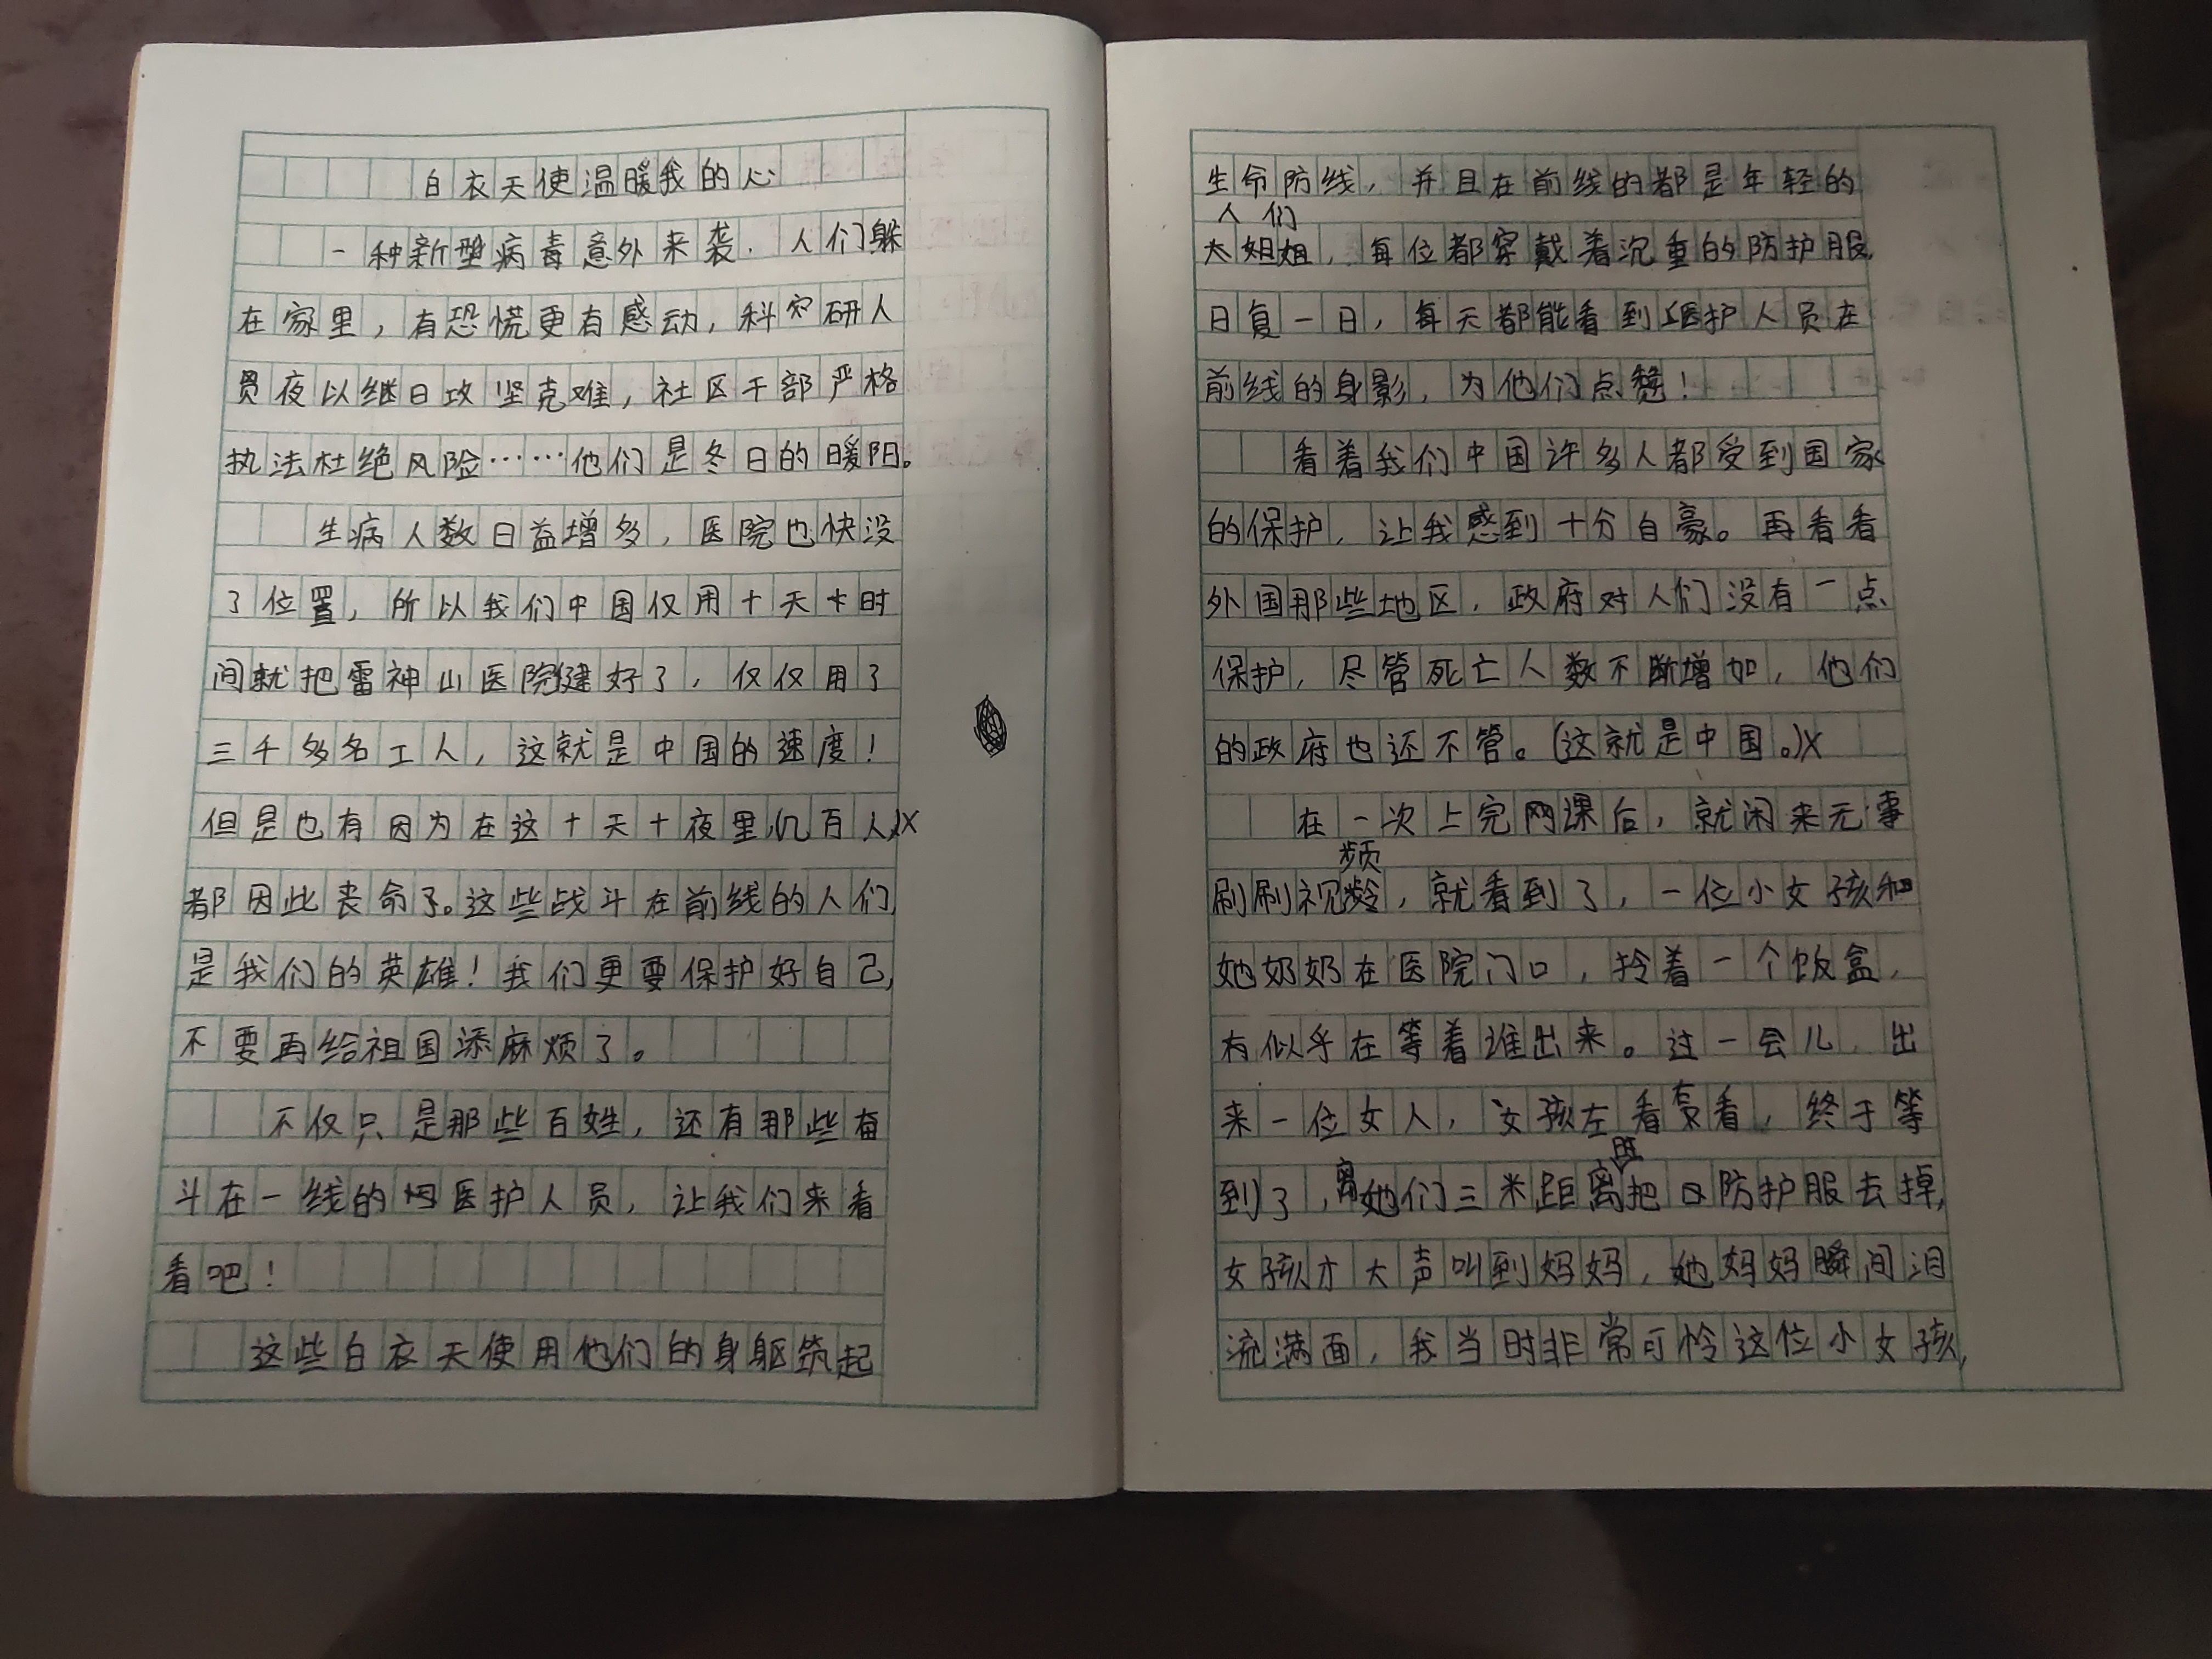 白衣天使温暖我的心
一种新型病毒意外来袭,人们躲
在家里,有恐慌更有感动,科研人
员夜以继日攻坚克难,社区干部严格
执法杜绝风险……他们是冬日的暖阳。
生病人数日益增多,医院也快没
了位置,所以我们中国仅用十天时
间就把雷神山医院健好了,仅仅用了
三千多名工人,这就是中国的速度!
但是也有因为在这十天十夜里,几百人
都因此丧命了。这些战斗在前线的人们,
是我们的英雄!我们更要保护好自己,
不要再给祖国添麻烦了。
不仅只是那些百姓,还有那些奋
斗在一线的医护人员,让我们来看
看吧!
这些白衣天使用他们的身躯筑起
生命防线,并且在前线的都是年轻的
人们
大姐姐,每位都穿戴着沉重的防护服,
日复一日,每天都能看到医护人员在
前线的身影,为他们点赞!
看着我们中国许多人都受到国家
的保护,让我感到十分自豪。再看看
外国那些地区,政府对人们没有一点
保护,尽管死亡人数不断增加,他们
的政府也还不管。(这就是中国。)X
在一次上完网课后,就闲来无事
频
刷刷视,就看到了,一位小女孩和
她奶奶在医院门口,拎着一个饭盒,
有似乎在等着谁出来。过一会儿,出
来一位女人,女孩左看右看,终于等
到了,离她们三米距离把防护服去掉,
女孩才大声叫到妈妈,她妈妈瞬间泪
流满面,我当时非常可怜这位小女孩,